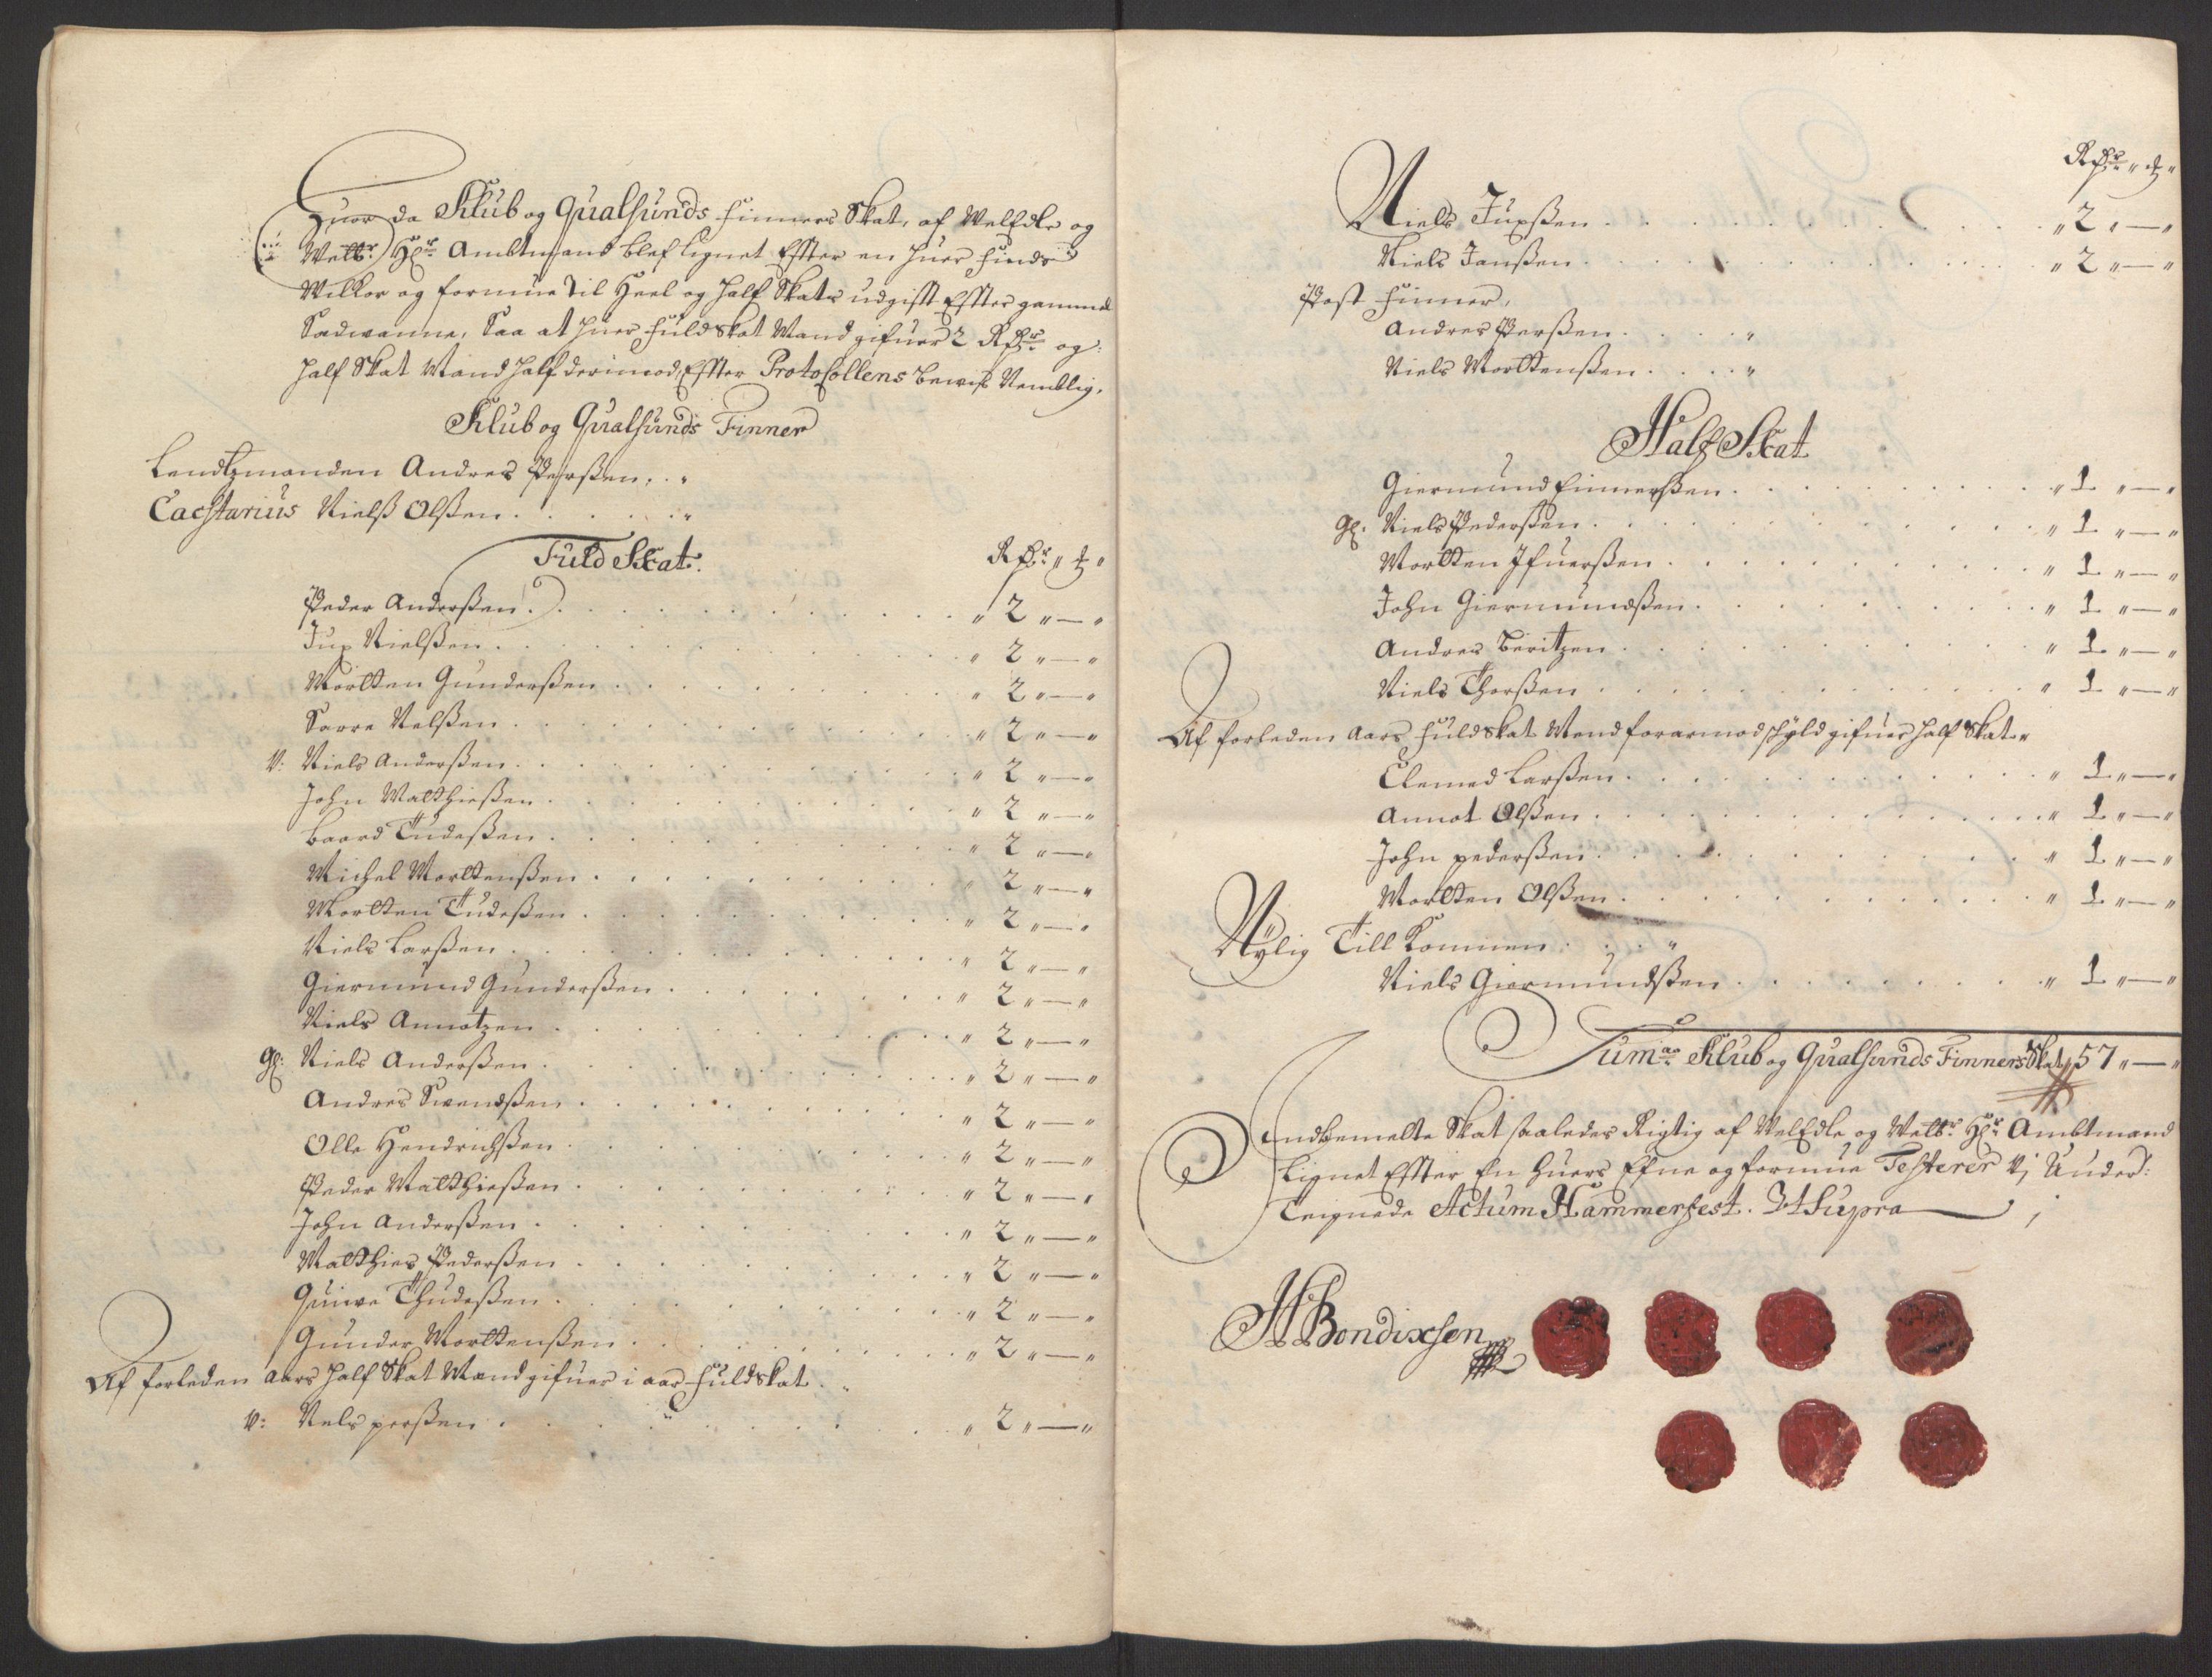 Huor da Klub og Qualsunds Finners Skat, af WelEdle og
Welbr. Hr. Ambtmand blef lignet Effter en huer finds
Wilkor og formue Til Heel og half Skats udgifft Effter gammel
Sædwanne, Saa at huer fuld Skat Mand gifuer 2 Rdr og
half Skat Mand half derimod, Effter Protocollens bewiis Nemblig,
Klub og Qualsunds Finner
Lendtzmanden Andres Perßen . . "
Cacstarius Nielß Olßen . . . . . "
Fuld Skat. Rdr " ß "
Peder Anderßen . " 2 " — "
Jup Nielßen . " 2 " — "
Mortten Gunderßen . " 2 " — "
Sarre Nelßen . " 2 " — "
V: Niels Anderßen . " 2 " — "
John Matthießen . " 2 " — "
Baard Tudeßen . " 2 " — "
Michel Morttenßen . " 2 " — "
Mortten Tudeßen . " 2 " — "
Niels Larßen . " 2 " — "
Giermund Gunderßen . " 2 " — "
Niels Annotzen . " 2 " — "
Gl: Niels Anderßen . " 2 " — "
Andres Swendßen . " 2 " — "
Olle Hendrichßen . " 2 " — "
Peder Matthießen . " 2 " — "
John Anderßen . " 2 " — "
Matthies Pederßen . " 2 " — "
Guiwe Thudeßen . " 2 " — "
Gunder Morttenßen . " 2 " — "
Af forleden Aars half Skat Mænd gifues i aar fuld Skat . "
V: Nels perßen . " 2 " — "
Rdr " ß "
Niels Jupßen . " 2 " — "
Niels Janßen . " 2 " — "
Post Finner,
Andres Perßen . . . . "
Niels Morttenßen . . . . "
Half Skat
Giermund Einnerßen . " 1 " — "
Gl. Niels Pederßen . " 1 " — "
Mortten Ifuerßen . " 1 " — "
John Giermundßen . " 1 " — "
Andres Beritzen . " 1 " — "
Niels Thorßen . " 1 " — "
Af forleden Aars fuld Skat Mend for armod skyld gifues half Skat "
Clemed Larßen . " 1 " — "
Annot Olßen . " 1 " — "
John pederßen . " 1 " — "
Mortten Olßen . " 1 " — "
Nylig Till Kommen . . . "
Niels Giermundßen . " 1 " — "
Suma Klub og Qualsunds Finners Skat 57 " — "
Indbemelte Skat saaledes Rigtig af WelEdle og Welbr. Hr. Ambtmand
Lignet Effter En huers Efne og formue Testerer Vj Under:
Teignede Actum Hammerfest. Ut Supra
H Bendixsen